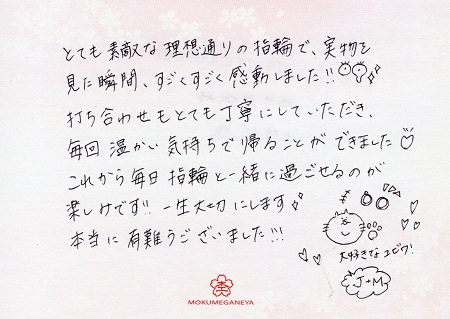 とても素敵な理想通りの指輪で、実物を
見た瞬間、すごくすごく感動しました!!
打ち合わせもとても丁寧にしていただき、
毎回温かい気持ちで帰ることができました♡
これから毎日指輪と一緒に過ごせるのが
楽しみです!! 一生大切にします
本当に有難うございました!!!
大好きなユビワ!
J+M
MOKUMEGANEYA